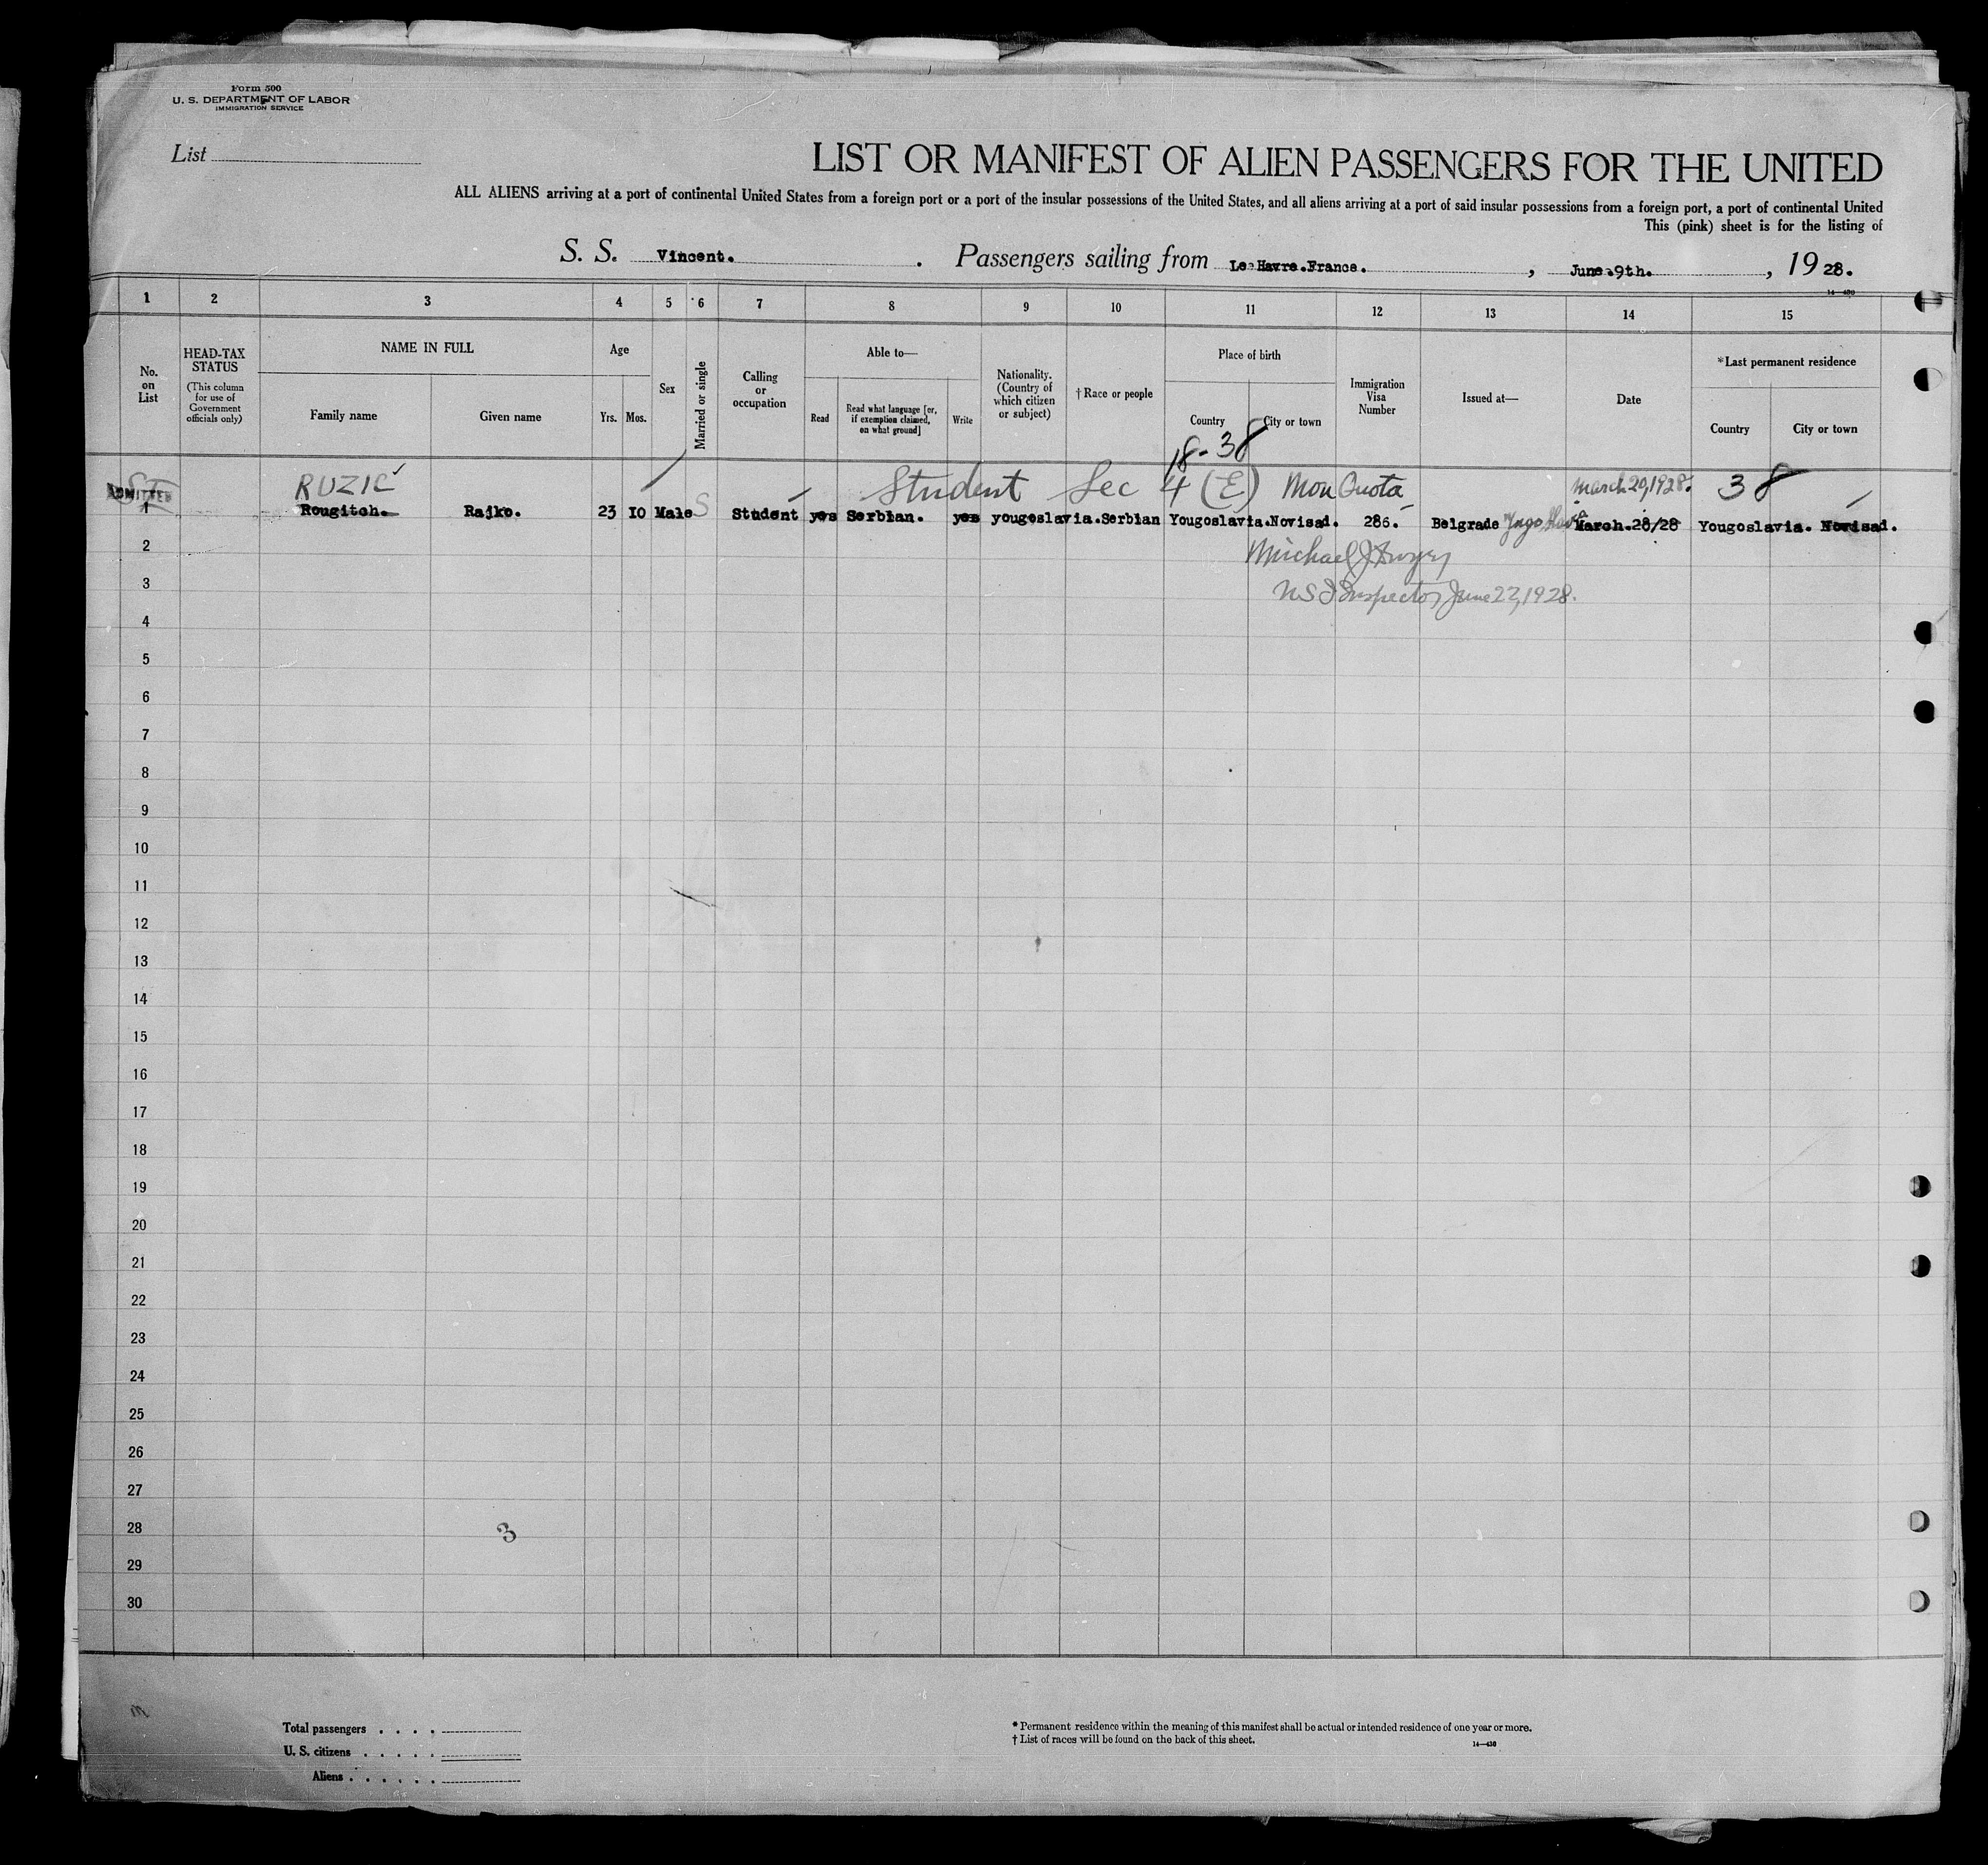 Form 500
U. S. DEPARTMENT OF LABOR
IMMIGRATION SERVICE
List
LIST OR MANIFEST OF ALIEN PASSENGERS FOR THE UNITED
ALL ALIENS arriving at a port of continental United States from a foreign port or a port of the insular possessions of the United States, and all aliens arriving at a port of said insular possessions from a foreign port, a port of continental United
This (pink) sheet is for the listing of
S. S. Vincent. Passengers sailing from Le Havre.France. , June.9th. , 19 28.
14—430
1 2 3 4 5 6 7 8 9 10 11 12 13 14 15
No. on List
HEAD-TAX STATUS
(This column for use of Government officials only)
NAME IN FULL
Family name
Given name
Age
Yrs. Mos.
Sex
Married or single
Calling or occupation
Able to—
Read
Read what language [or, if exemption claimed, on what ground]
Write
Nationality. (Country of which citizen or subject)
† Race or people
Place of birth
Country
City or town
Immigration Visa Number
Issued at—
Date
*Last permanent residence
Country
City or town
18-38
ADMITTED RUZIC ✓ Student Sec 4 (E) Non Quota March 20, 1928. 38
1 Rougitch. Rajko. 23 10 Male S Student yes Serbian. yes yougoslavia. Serbian Yougoslavia. Novisad. 286. Belgrade Yugo Slavia March.28/28 Yougoslavia. Novisad.
2 Michael J
3 US I Inspector June 27, 1928.
4
5
6
7
8
9
10
11
12
13
14
15
16
17
18
19
20
21
22
23
24
25
26
27
28 3
29
30
Total passengers . . . .
U. S. citizens . . . . .
Aliens . . . . . .
* Permanent residence within the meaning of this manifest shall be actual or intended residence of one year or more.
† List of races will be found on the back of this sheet.
14—430